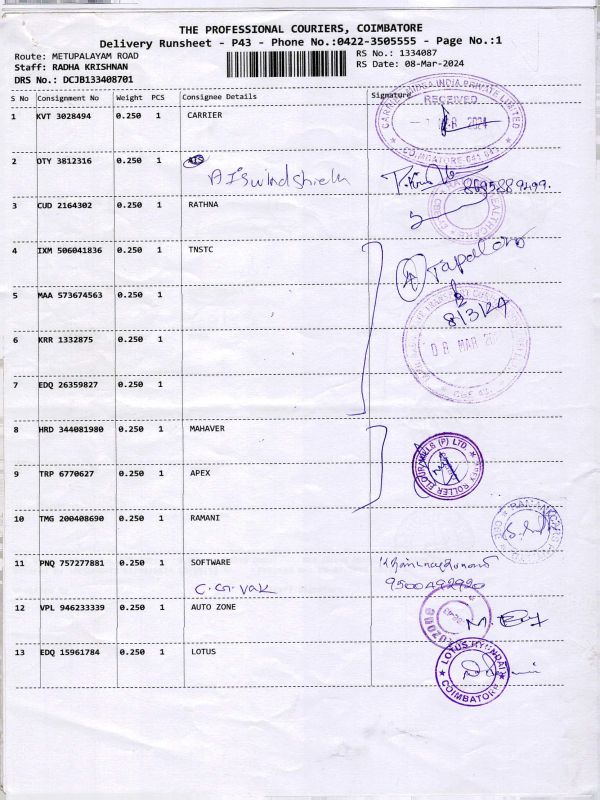 THE PROFESSIONAL COURIERS, COIMBATORE
Delivery Runsheet - P43 - Phone No.:0422-3505555 - Page No.:1
Route: METUPALAYAM ROAD
RS No.: 1334087
Staff: RADHA KRISHNAN
RS Date: 08-Mar-2024
DRS No.: DCJB133408701
S No Consignment No Weight PCS Consignee Details Signature
1 KVT 3028494 0.250 1 CARRIER
RECEIVED
COIMBATORE
2 OTY 3812316 0.250 1
AIS windshield
8695889499.
3 CUD 2164302 0.250 1 RATHNA
4 IXM 506041836 0.250 1 TNSTC
4 Tapals
5 MAA 573674563 0.250 1
8/3/24
6 KRR 1332875 0.250 1
08 MAR
7 EDQ 26359827 0.250 1
8 HRD 344081980 0.250 1 MAHAVER
ROLLER FLOUR MILLS (P) LTD
9 TRP 6770627 0.250 1 APEX
10 TMG 200408690 0.250 1 RAMANI
11 PNQ 757277881 0.250 1 SOFTWARE
C.G.VAK
9500492920
12 VPL 946233339 0.250 1 AUTO ZONE
13 EDQ 15961784 0.250 1 LOTUS
LOTUS HYUNDAI
COIMBATORE